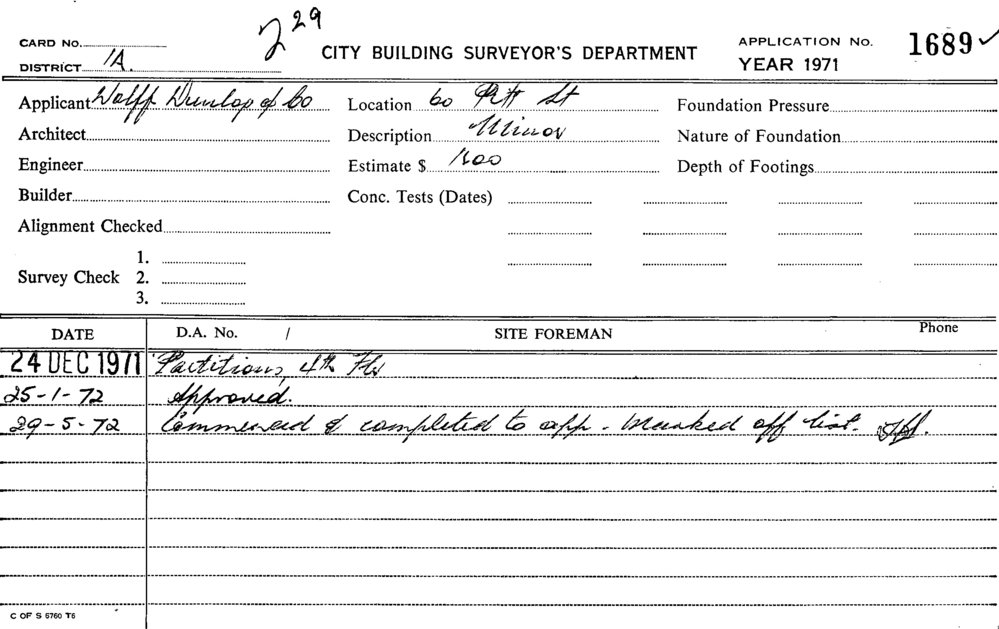 229
CARD No.
CITY BUILDING SURVEYOR'S DEPARTMENT
APPLICATION No. 1689 ✓
DISTRICT 1A.
YEAR 1971
Applicant Wolff Dunlop & Co
Location 60 Pitt St
Foundation Pressure
Architect
Description Minor
Nature of Foundation
Engineer
Estimate $ 1600
Depth of Footings
Builder
Conc. Tests (Dates)
Alignment Checked
Survey Check
1.
2.
3.
DATE D.A. No. / SITE FOREMAN Phone
24 DEC 1971 Partitions, 4th Flr
25-1-72 Approved.
29-5-72 Commenced & completed to app - Marked off list.
C OF S 6760 T6